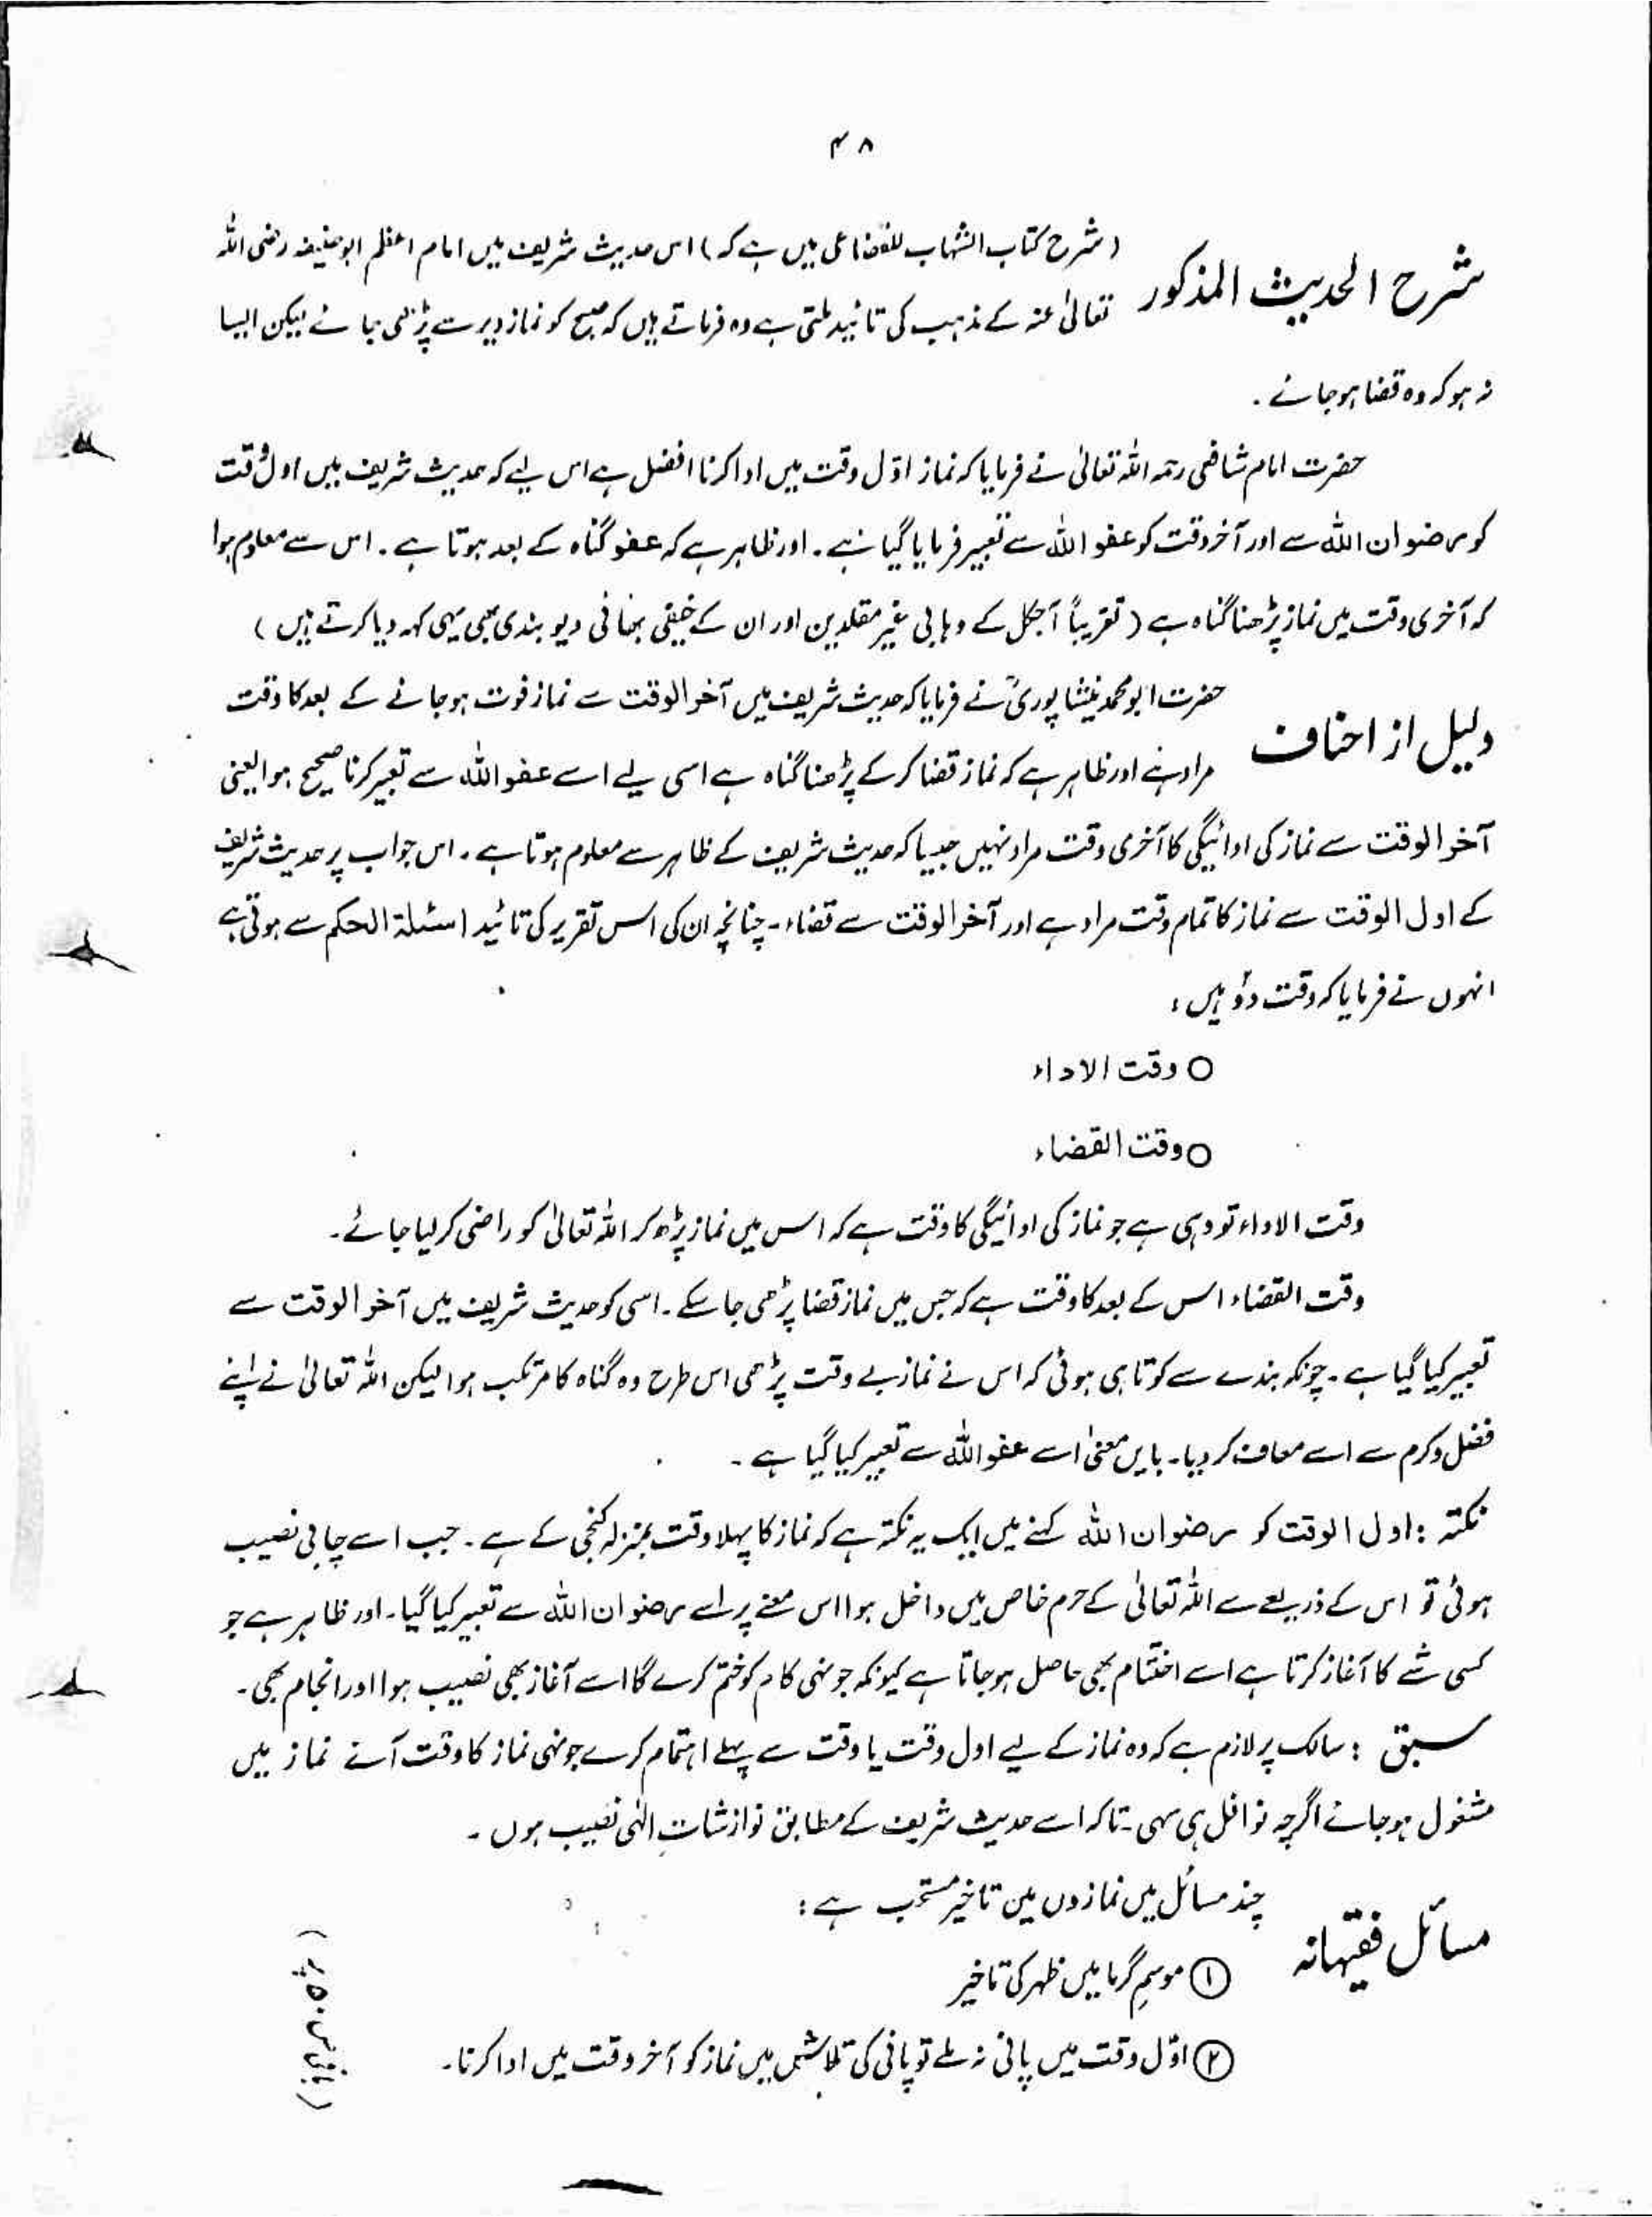 ۴۸
شرح الحدیث المذکور
(شرح کتاب الشہاب للقضاعی میں ہے کہ) اس حدیث شریف میں امام اعظم ابوحنیفہ رضی اللہ
تعالیٰ عنہ کے مذہب کی تائید ملتی ہے وہ فرماتے ہیں کہ صبح کو نماز دیر سے پڑھی جائے لیکن ایسا
نہ ہو کہ وہ قضا ہوجائے۔
حضرت امام شافعی رحمہ اللہ تعالیٰ نے فرمایا کہ نماز اوّل وقت میں ادا کرنا افضل ہے اس لیے کہ حدیث شریف میں اول وقت
کو رضوان اللہ سے اور آخر وقت کو عفو اللہ سے تعبیر فرمایا گیا ہے۔ اور ظاہر ہے کہ عفو گناہ کے بعد ہوتا ہے۔ اس سے معلوم ہوا
کہ آخری وقت میں نماز پڑھنا گناہ ہے (تقریباً آجکل کے وہابی غیر مقلدین اور ان کے خفیفی بھائی دیوبندی بھی یہی کہہ دیا کرتے ہیں)
دلیل از احناف
حضرت ابو محمد نیشاپوریؒ نے فرمایا کہ حدیث شریف میں آخر الوقت سے نماز فوت ہوجانے کے بعد کا وقت
مراد ہے اور ظاہر ہے کہ نماز قضا کرکے پڑھنا گناہ ہے اسی لیے اسے عفو اللہ سے تعبیر کرنا صحیح ہوا یعنی
آخر الوقت سے نماز کی ادائیگی کا آخری وقت مراد نہیں جیسا کہ حدیث شریف کے ظاہر سے معلوم ہوتا ہے۔ اس جواب پر حدیث شریف
کے اول الوقت سے نماز کا تمام وقت مراد ہے اور آخر الوقت سے قضاء۔ چنانچہ ان کی اس تقریر کی تائید اسئلۃ الحکم سے ہوتی ہے
انہوں نے فرمایا کہ وقت دو ہیں:
○ وقت الاداء
○ وقت القضاء
وقت الاداء تو وہی ہے جو نماز کی ادائیگی کا وقت ہے کہ اس میں نماز پڑھ کر اللہ تعالیٰ کو راضی کر لیا جائے۔
وقت القضاء اس کے بعد کا وقت ہے کہ جس میں نماز قضا پڑھی جاسکے۔ اسی کو حدیث شریف میں آخر الوقت سے
تعبیر کیا گیا ہے۔ چونکہ بندے سے کوتاہی ہوئی کہ اس نے نماز بے وقت پڑھی اس طرح وہ گناہ کا مرتکب ہوا لیکن اللہ تعالیٰ نے اپنے
فضل و کرم سے اسے معاف کردیا۔ بایں معنیٰ اسے عفو اللہ سے تعبیر کیا گیا ہے۔
نکتہ : اول الوقت کو رضوان اللہ کہنے میں ایک یہ نکتہ ہے کہ نماز کا پہلا وقت بمنزلہ کنجی کے ہے۔ جب اسے چابی نصیب
ہوئی تو اس کے ذریعے سے اللہ تعالیٰ کے حرم خاص میں داخل ہوا اس معنے پر اسے رضوان اللہ سے تعبیر کیا گیا۔ اور ظاہر ہے جو
کسی شے کا آغاز کرتا ہے اسے اختتام بھی حاصل ہوجاتا ہے کیونکہ جونہی کام کو ختم کرے گا اسے آغاز بھی نصیب ہوا اور انجام بھی۔
سبق : سالک پر لازم ہے کہ وہ نماز کے لیے اول وقت یا وقت سے پہلے اہتمام کرے جونہی نماز کا وقت آئے نماز میں
مشغول ہوجائے اگرچہ نوافل ہی سہی۔ تاکہ اسے حدیث شریف کے مطابق نوازشاتِ الٰہی نصیب ہوں۔
مسائل فقیہانہ
چند مسائل میں نمازوں میں تاخیر مستحب ہے:
① موسمِ گرما میں ظہر کی تاخیر
② اوّل وقت میں پانی نہ ملے تو پانی کی تلاش میں نماز کو آخر وقت میں ادا کرنا۔